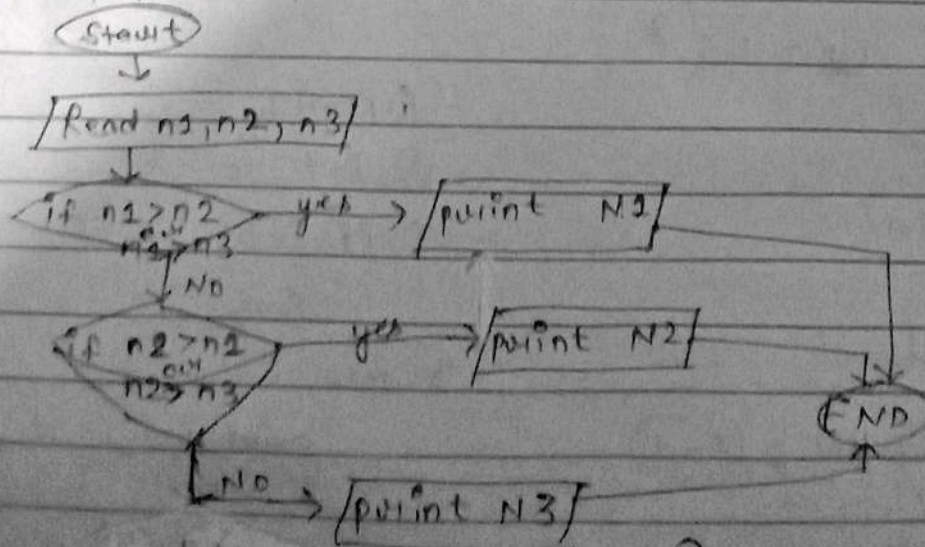 Start
Read n1, n2, n3
if n1 > n2
n1 > n3
yes
print N1
NO
if n2 > n1
n2 > n3
yes
print N2
END
NO
print N3